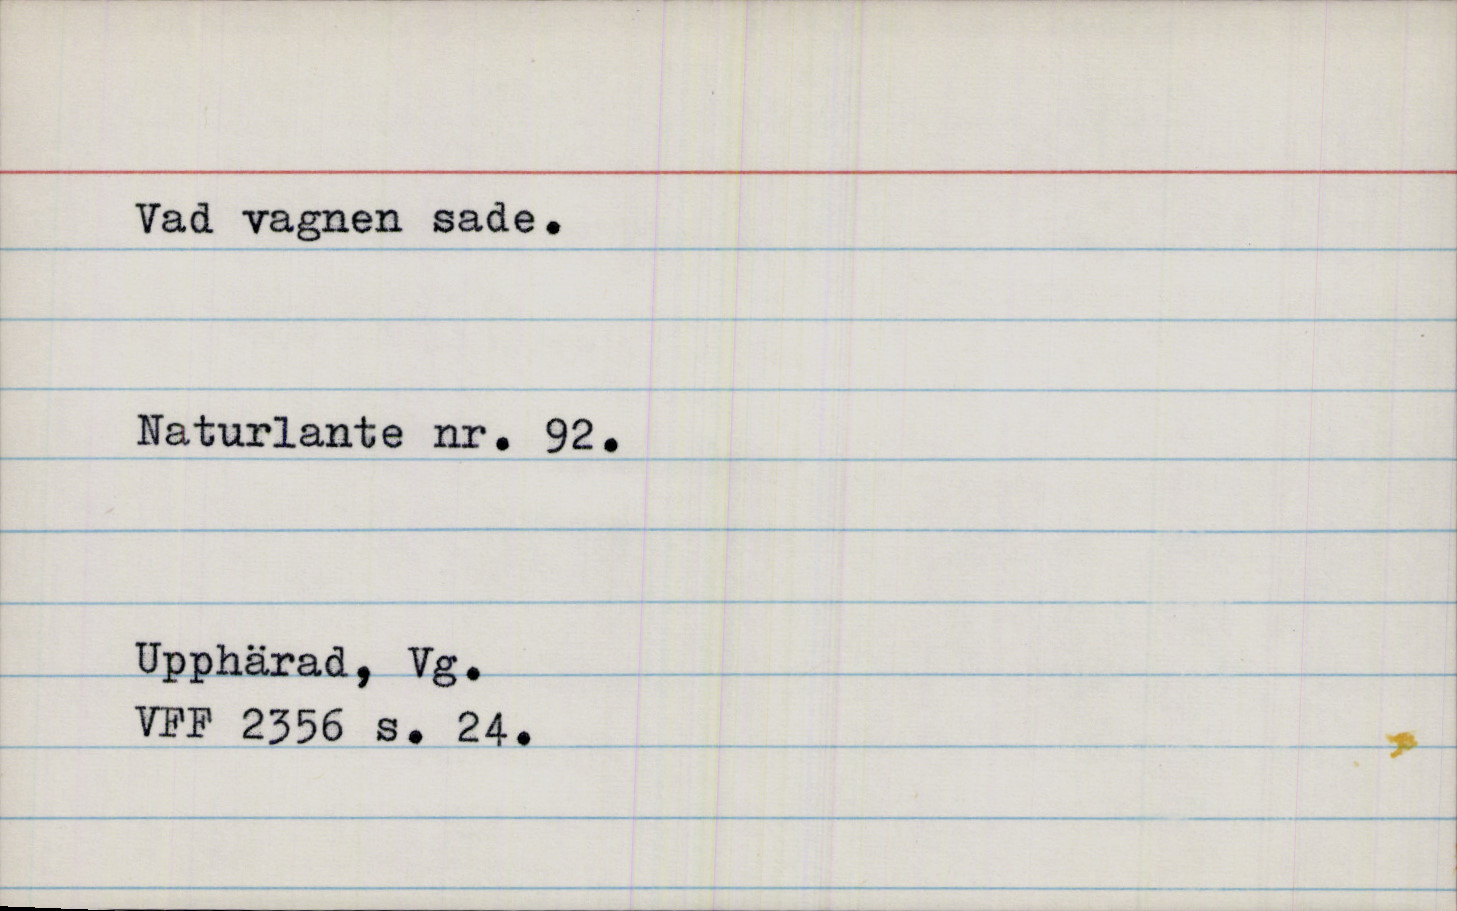 Vad vagnen sade.
Naturlante nr. 92.
Upphärad, Vg.
VFF 2356 s. 24.